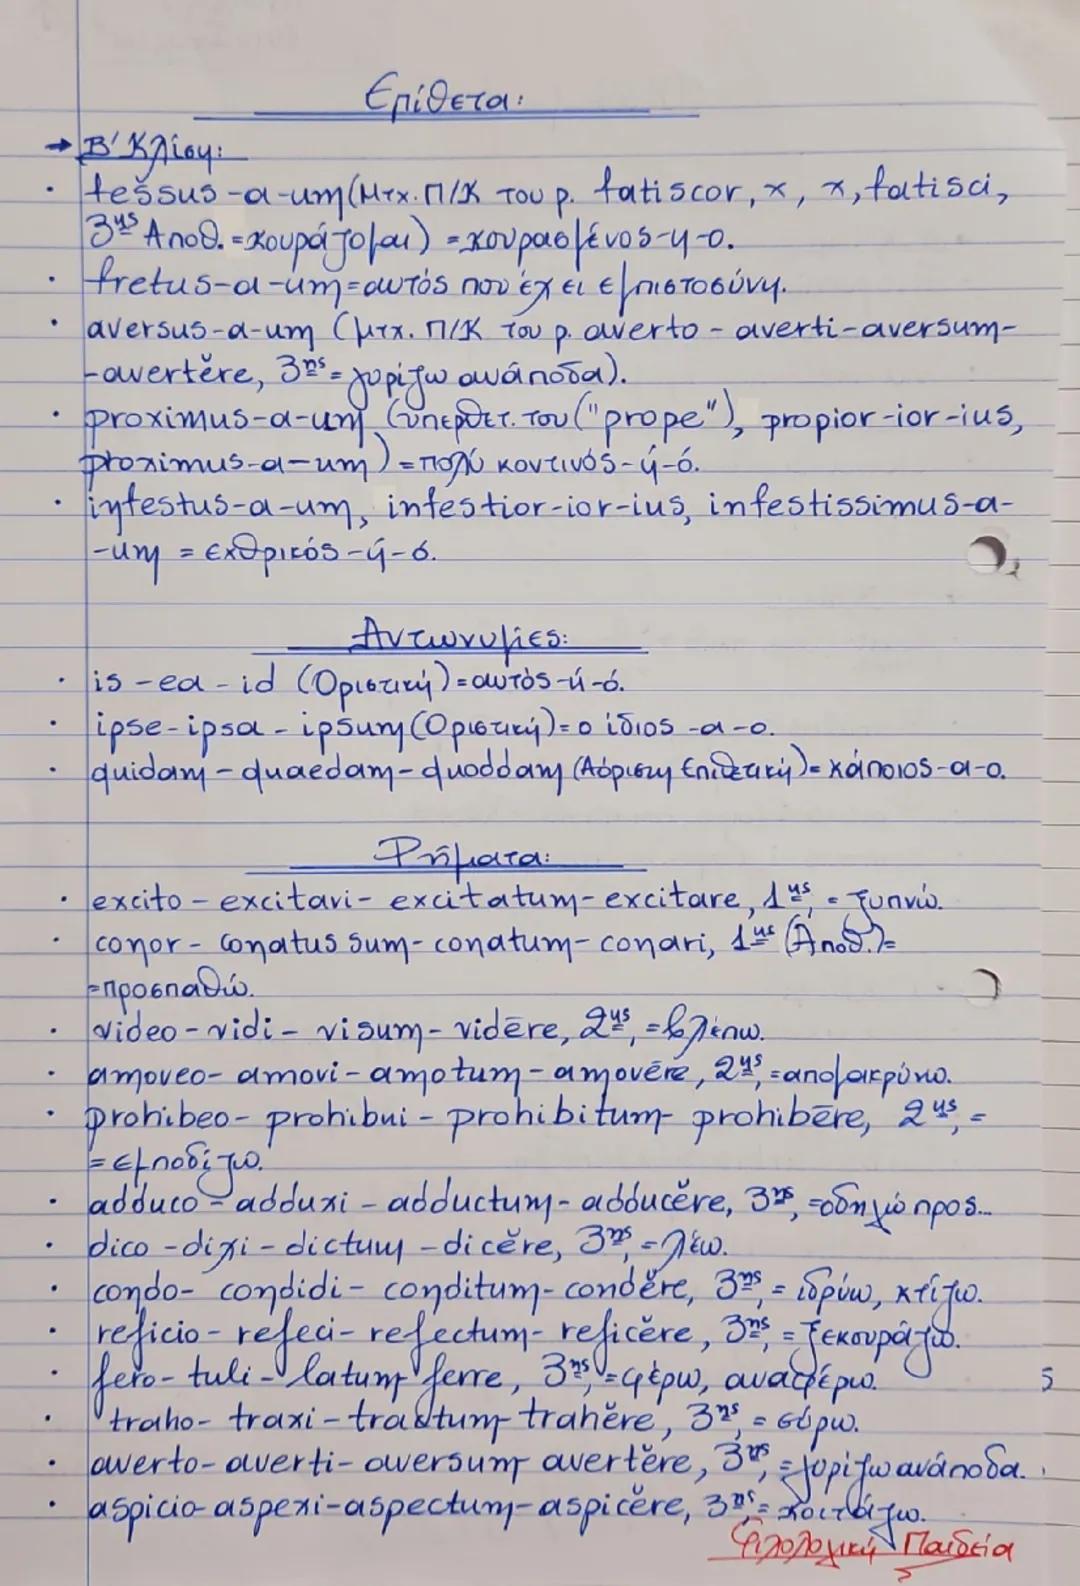 Επίθετα:
→ Β' Κλίση:
· fessus-a-um (Μτχ. Π/Κ του ρ. fatiscor, x, x, fatisci,
3ης Αποθ. = κουράζομαι) = κουρασμένος-η-ο.
· fretus-a-um = αυτός που έχει εμπιστοσύνη.
· aversus-a-um (μτχ. Π/Κ του ρ. averto - averti-aversum-
-avertĕre, 3ης = γυρίζω ανάποδα).
· proximus-a-um (υπερθετ. του ("prope"), propior-ior-ius,
proximus-a-um) = πολύ κοντινός-ή-ό.
· infestus-a-um, infestior-ior-ius, infestissimus-a-
-um = εχθρικός-ή-ό.
Αντωνυμίες:
· is - ea - id (Οριστική) = αυτός-ή-ό.
· ipse - ipsa - ipsum (Οριστική) = ο ίδιος -α -ο.
· quidam - quaedam - quoddam (Αόριστη Επιθετική) = κάποιος-α-ο.
Ρήματα:
· excito - excitavi - excitatum - excitare, 1ης, = ξυπνώ.
· conor - conatus sum - conatum - conari, 1ης (Αποθ.) =
= προσπαθώ.
· video - vidi - visum - vidēre, 2ης, = βλέπω.
· amoveo - amovi - amotum - amovēre, 2ης, = απομακρύνω.
· prohibeo - prohibui - prohibitum - prohibēre, 2ης, =
= εμποδίζω.
· adduco - adduxi - adductum - adducĕre, 3ης, = οδηγώ προς...
· dico - dixi - dictum - dicĕre, 3ης, = λέω.
· condo - condidi - conditum - condĕre, 3ης, = ιδρύω, κτίζω.
· reficio - refeci - refectum - reficĕre, 3ης, = ξεκουράζω.
· fero - tuli - latum ferre, 3ης, = φέρω, αναφέρω.
5
· traho - traxi - tractum - trahĕre, 3ης, = σύρω.
· averto - averti - aversum avertĕre, 3ης, = γυρίζω ανάποδα.
· aspicio aspexi - aspectum - aspicĕre, 3ης, = κοιτάζω.
Φιλολογική Παιδεία